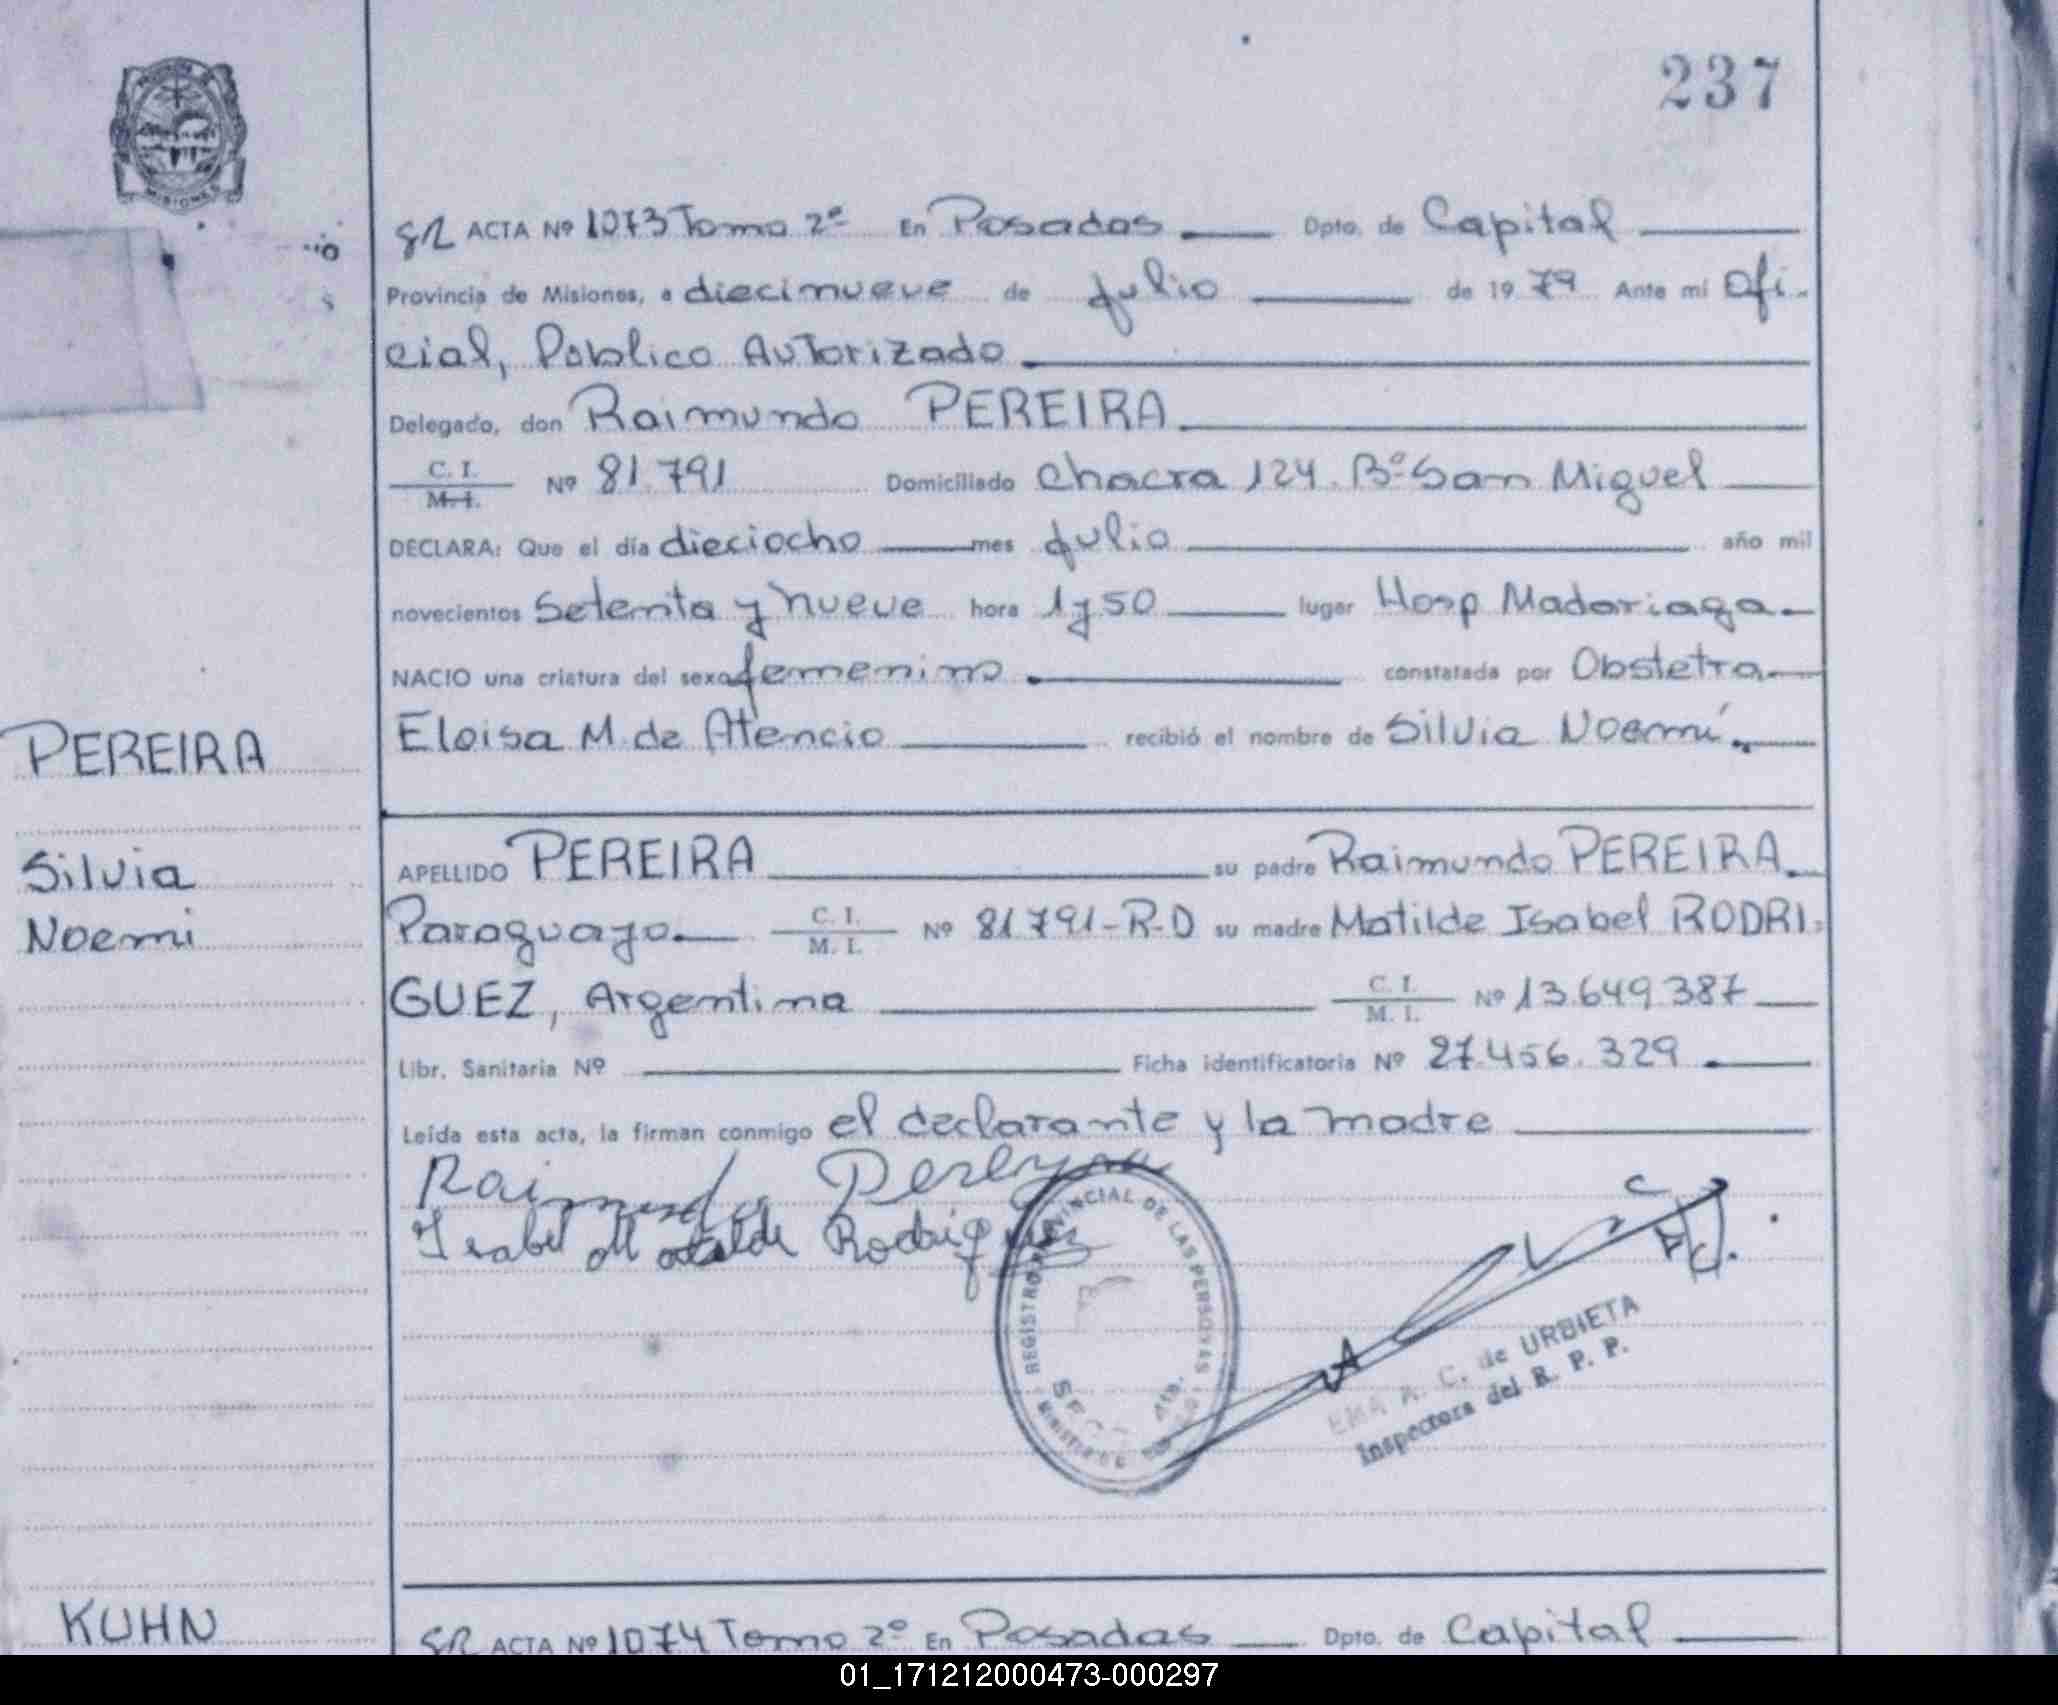 237
PROVINCIA DE
MISIONES
SR ACTA Nº 1073 Tomo 2º En Posadas Dpto. de Capital
Provincia de Misiones, a diecinueve de julio de 1979 Ante mi Ofi-
cial, Público Autorizado
Delegado, don Raimundo PEREIRA
C. I.
M. I. Nº 81.791 Domiciliado Chacra 124. Bº San Miguel
DECLARA: Que el día dieciocho mes julio año mil
novecientos Setenta y nueve hora 1 y 50 lugar Hosp Madariaga
NACIO una criatura del sexo femenino constatada por Obstetra
Eloisa M. de Atencio recibió el nombre de Silvia Noemí.
PEREIRA
Silvia
Noemi
APELLIDO PEREIRA su padre Raimundo PEREIRA
Paraguayo C. I.
M. I. Nº 81791-R-D su madre Matilde Isabel RODRI-
GUEZ, Argentina C. I.
M. I. Nº 13.649.387
Libr. Sanitaria Nº Ficha identificatoria Nº 27.456.329
Leída esta acta, la firman conmigo el declarante y la madre
Raimundo Pereyra
Isabel Matilde Rodriguez
REGISTRO PROVINCIAL DE LAS PERSONAS
C. de URBIETA
Inspectora del R. P. P.
KUHN
SR ACTA Nº 1074 Tomo 2º En Posadas Dpto. de Capital
01_171212000473-000297